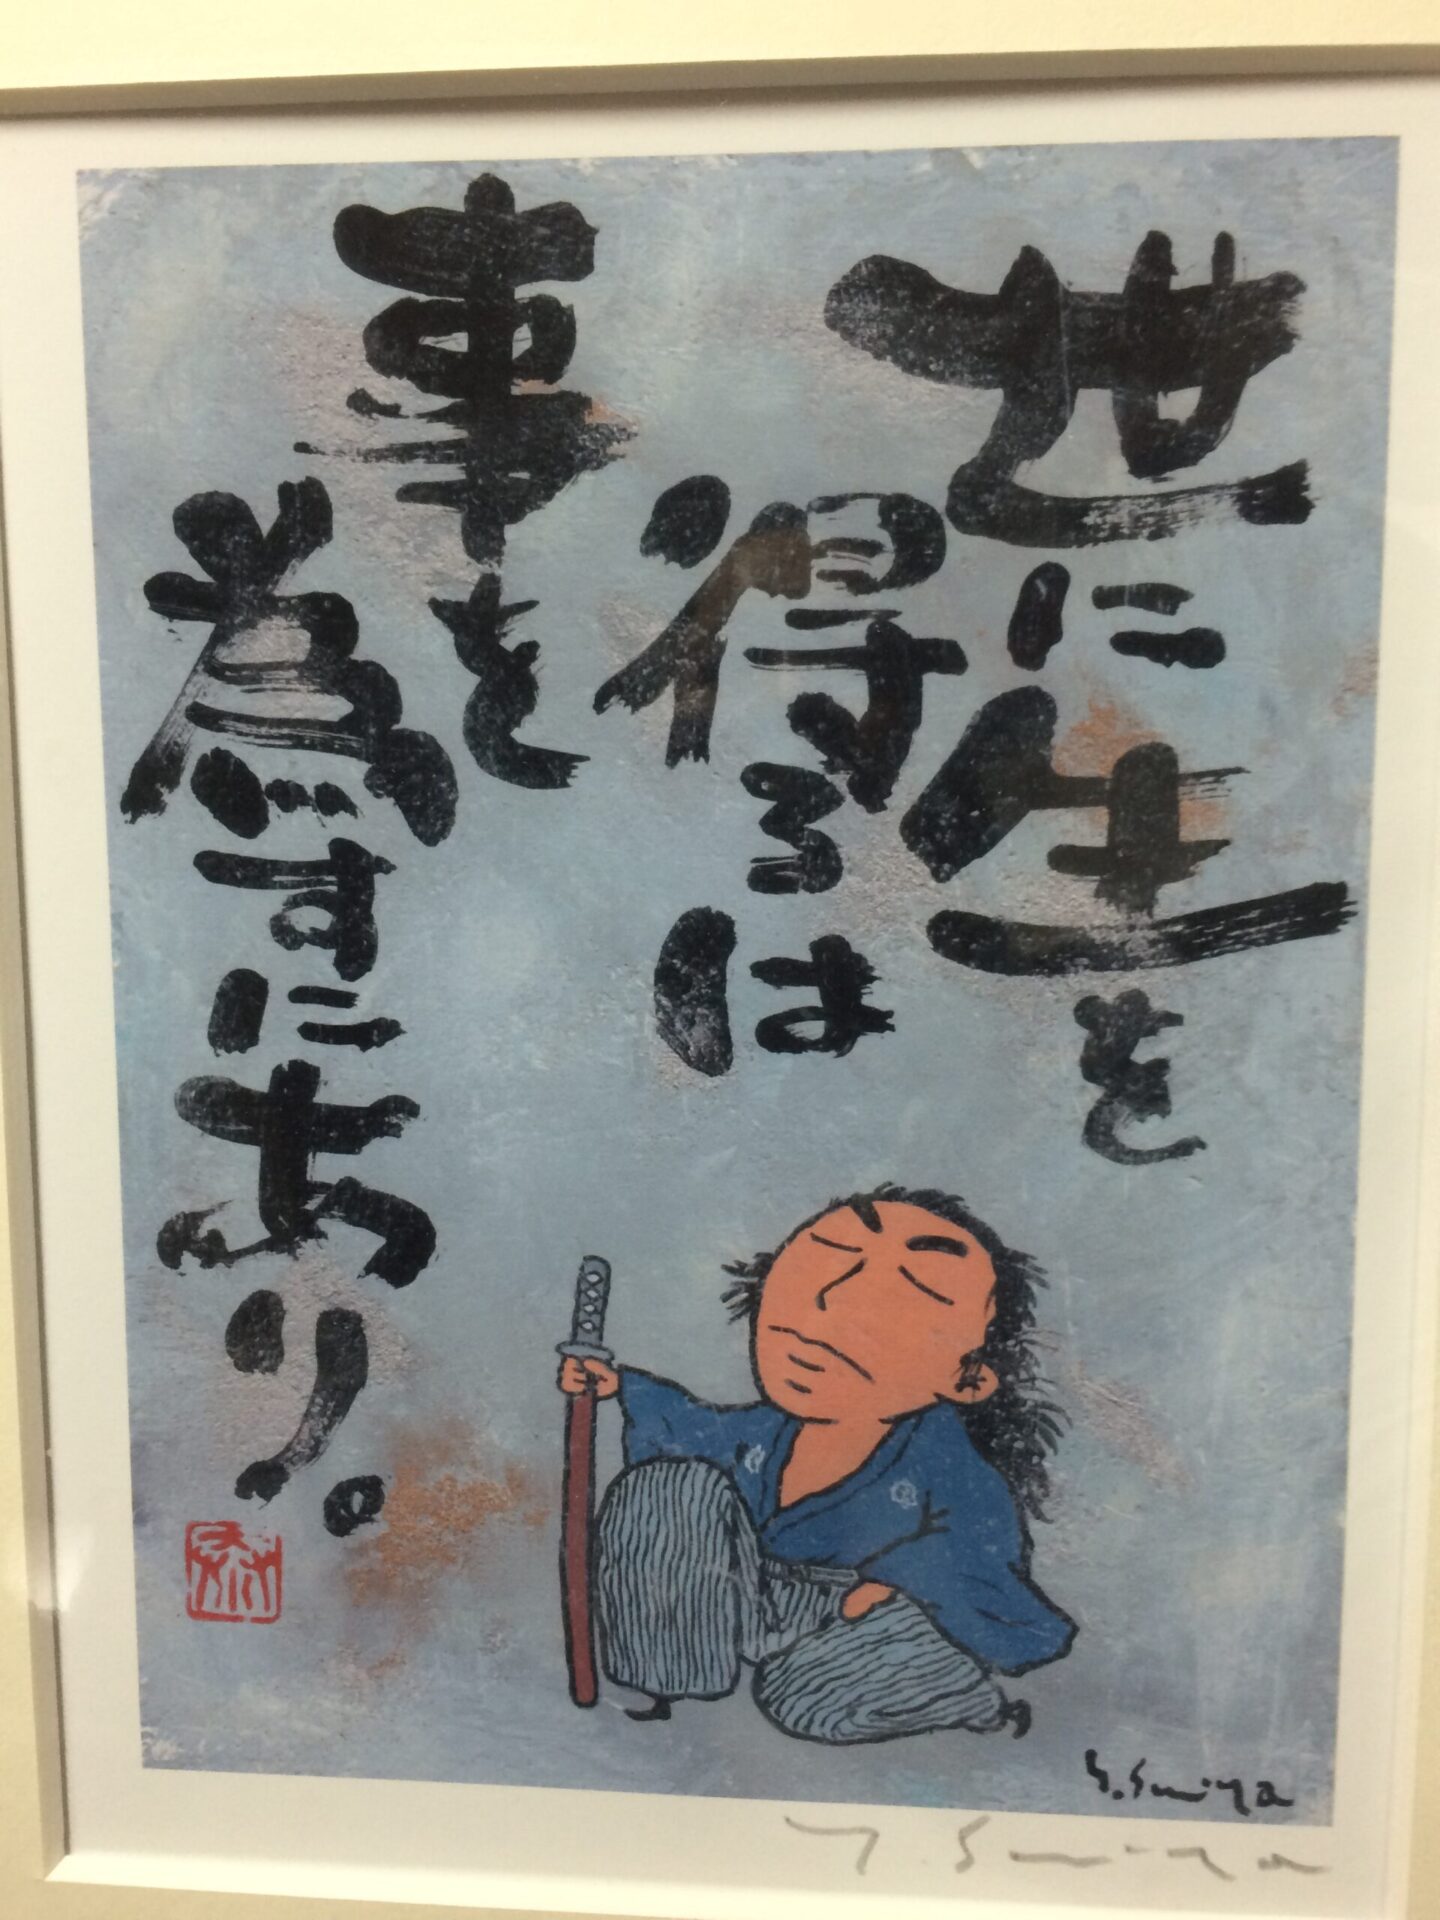 世に生を
得るは
事を
為すにあり。
Y.Sumiya
Y.Sumiya